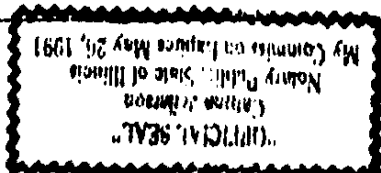 "OFFICIAL SEAL"
Jefferson
Notary Public, State of Illinois
My Commission Expires May 26, 1991